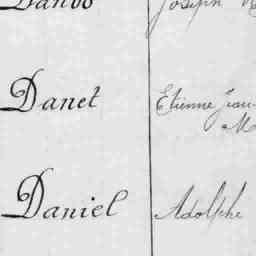 Danoo Joseph
Danet Etienne Jean
Daniel Adolphe